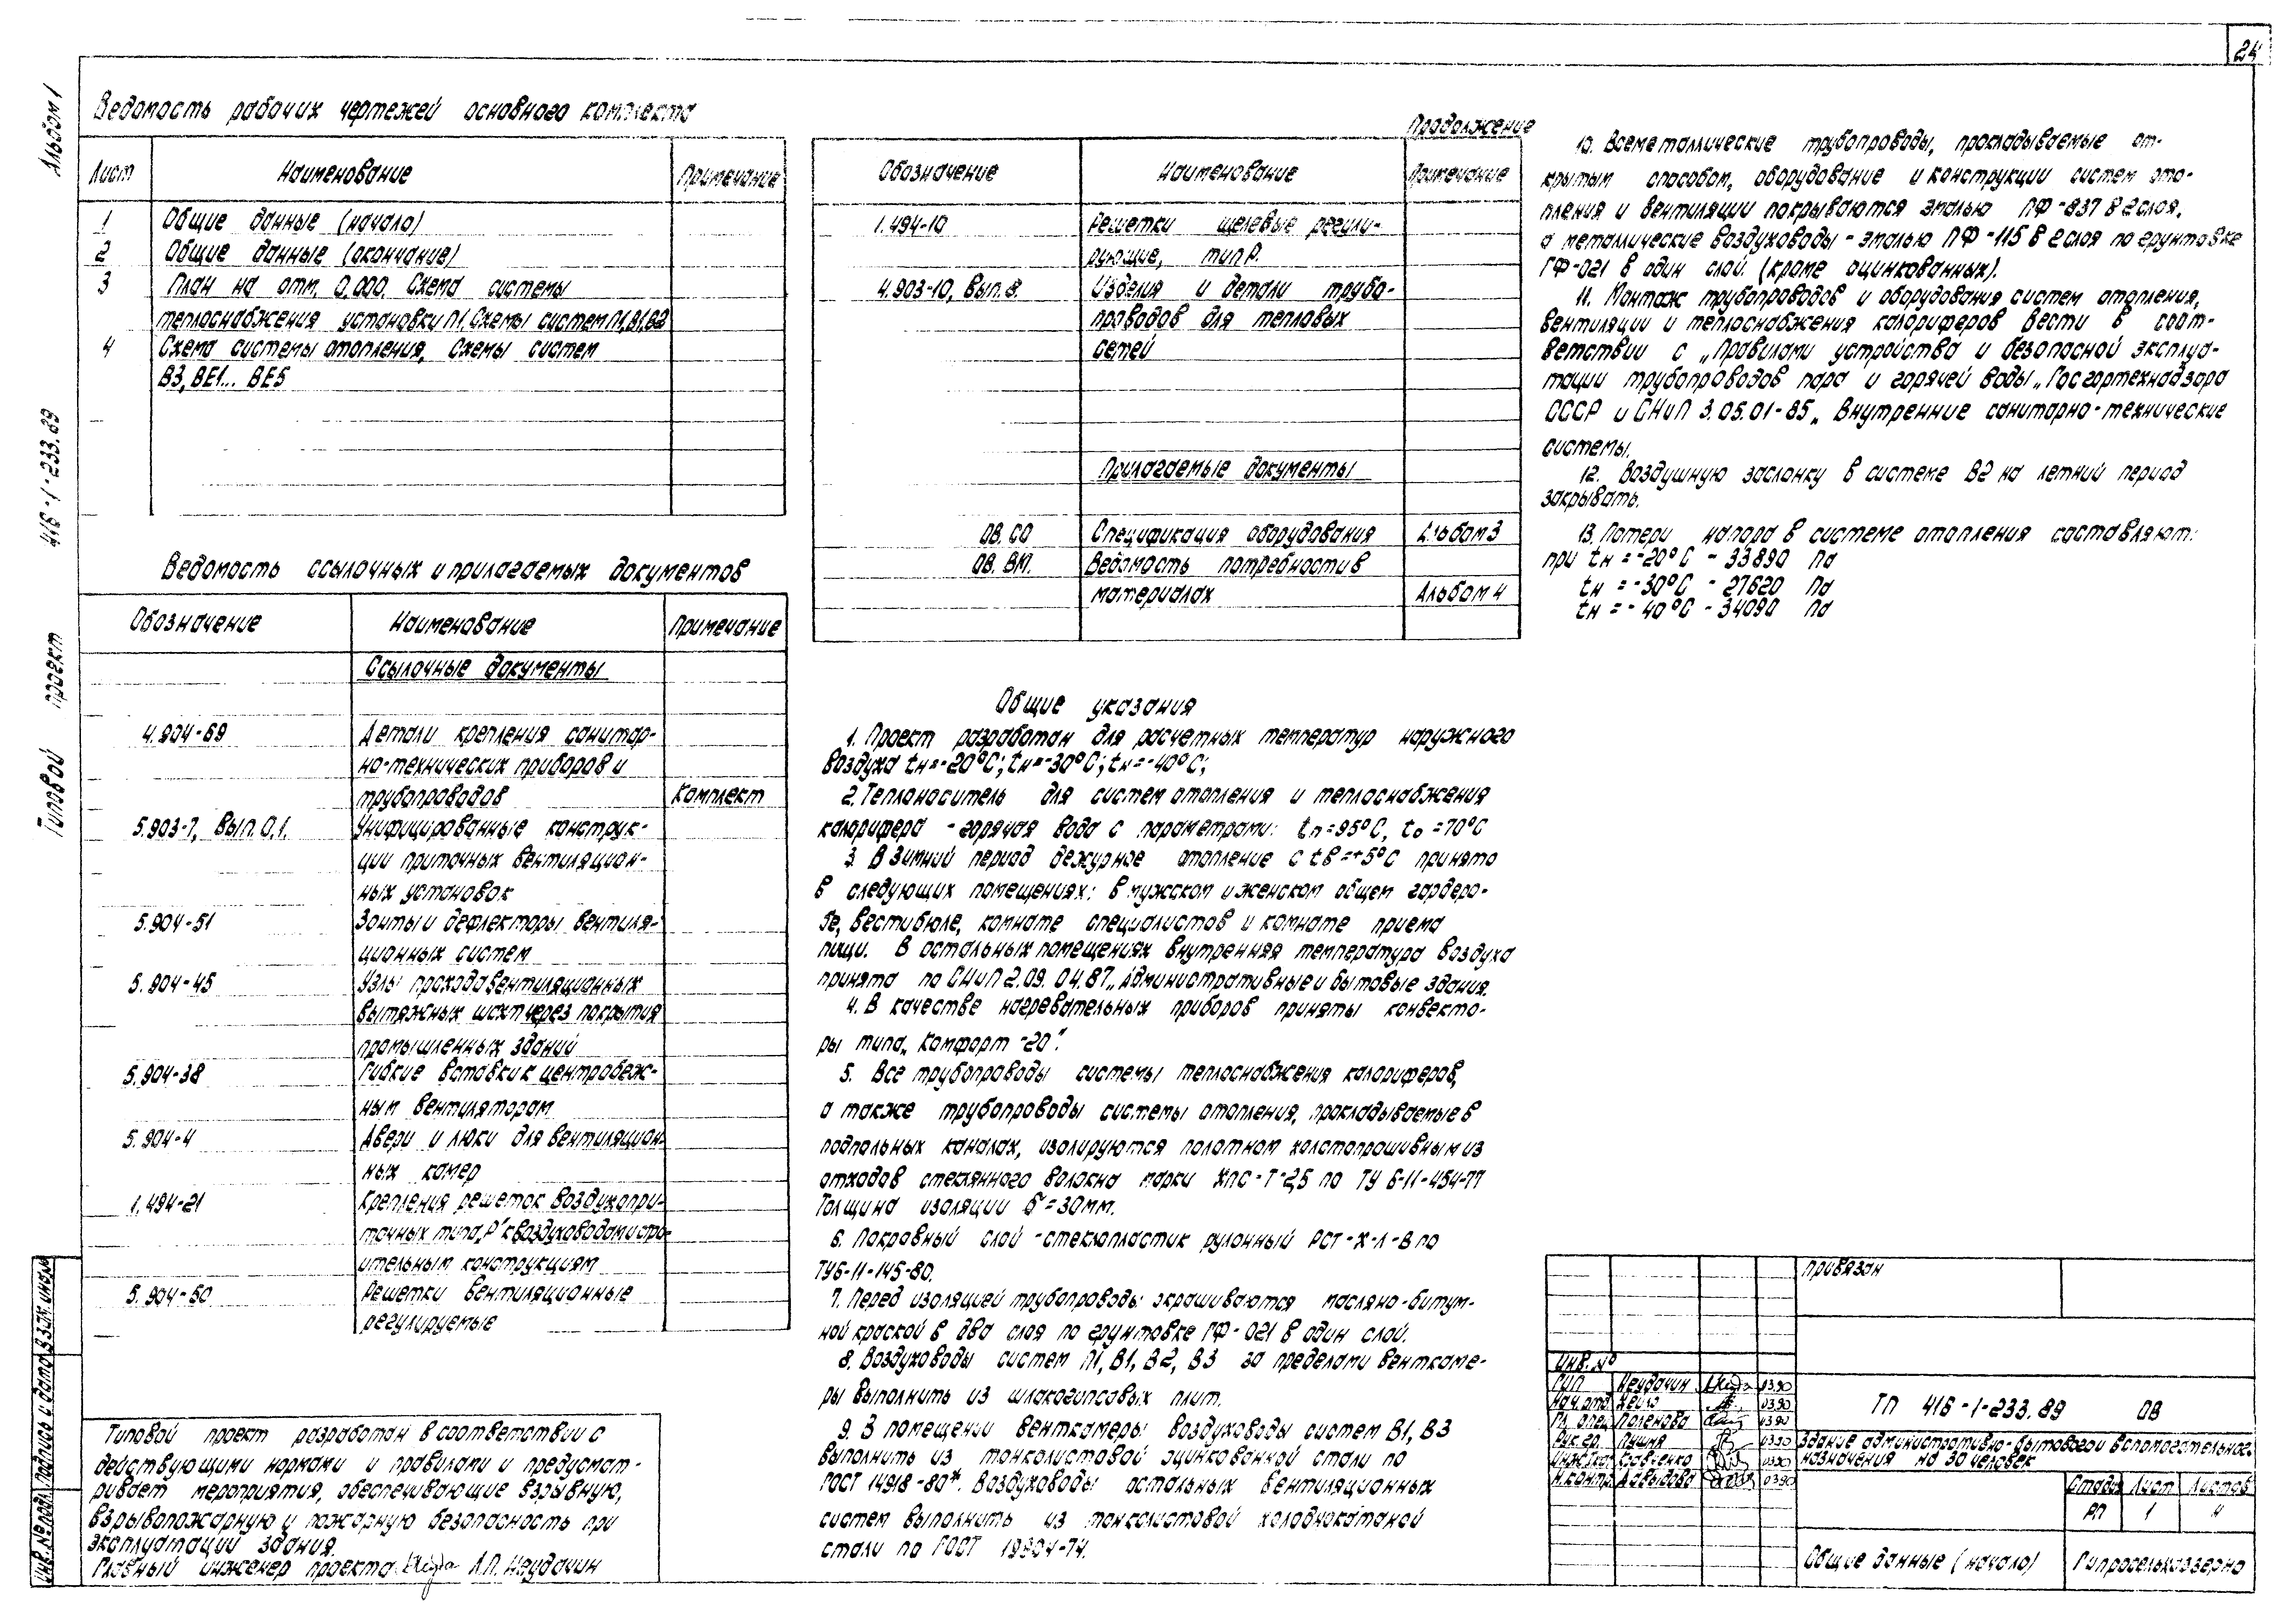 24
Альбом 1
416-1-233.89
Типовой проект
Ведомость рабочих чертежей основного комплекта
Лист Наименование Примечание
1 Общие данные (начало)
2 Общие данные (окончание)
3 План на отм. 0,000. Схема системы
теплоснабжения установки П1, Схемы систем П1, В1, В2
4 Схема системы отопления, Схемы систем
В3, ВЕ1... ВЕ5
Ведомость ссылочных и прилагаемых документов
Обозначение Наименование Примечание
Ссылочные документы
4.904-69 Детали крепления санитар-
но-технических приборов и
трубопроводов Комплект
5.903-7, Вып. 0,1. Унифицированные конструк-
ции приточных вентиляцион-
ных установок
5.904-51 Зонты и дефлекторы вентиля-
ционных систем
5.904-45 Узлы прохода вентиляционных
вытяжных шахт через покрытия
промышленных зданий
5.904-38 Гибкие вставки к центробеж-
ным вентиляторам
5.904-4 Двери и люки для вентиляцион-
ных камер
1.494-21 Крепления решеток воздухопри-
точных типа „Р" к воздуховодам и стро-
ительным конструкциям
5.904-50 Решетки вентиляционные
регулируемые
Типовой проект разработан в соответствии с
действующими нормами и правилами и предусмат-
ривает мероприятия, обеспечивающие взрывную,
взрывопожарную и пожарную безопасность при
эксплуатации здания.
Главный инженер проекта Л.П. Неудачин
Продолжение
Обозначение Наименование Примечание
1.494-10 Решетки щелевые регули-
рующие, тип Р.
4.903-10, Вып. 8. Изделия и детали трубо-
проводов для тепловых
сетей
Прилагаемые документы
ОВ. СО Спецификация оборудования Альбом 3
ОВ. ВМ. Ведомость потребности в
материалах Альбом 4
Общие указания
1. Проект разработан для расчетных температур наружного
воздуха tн=-20°С; tн=-30°С; tн=-40°С;
2. Теплоноситель для систем отопления и теплоснабжения
калорифера - горячая вода с параметрами: tп=95°С, tо=70°С
3. В зимний период дежурное отопление с tв=+5°С принято
в следующих помещениях: в мужском и женском общем гардеро-
бе, вестибюле, комнате специалистов и комнате приема
пищи. В остальных помещениях внутренняя температура воздуха
принята по СНиП 2.09.04.87 „Административные и бытовые здания.
4. В качестве нагревательных приборов приняты конвекто-
ры типа „Комфорт-20".
5. Все трубопроводы системы теплоснабжения калориферов,
а также трубопроводы системы отопления, прокладываемые в
подпольных каналах, изолируются полотном холстопрошивным из
отходов стеклянного волокна марки ХПС-Т-2,5 по ТУ 6-11-454-77
Толщина изоляции δ=30мм.
6. Покровный слой -стеклопластик рулонный РСТ-Х-Л-В по
ТУ6-11-145-80.
7. Перед изоляцией трубопроводы окрашиваются масляно-битум-
ной краской в два слоя по грунтовке ГФ-021 в один слой.
8. Воздуховоды систем П1, В1, В2, В3 за пределами венткаме-
ры выполнить из шлакогипсовых плит.
9. В помещении венткамеры воздуховоды систем В1, В3
выполнить из тонколистовой оцинкованной стали по
ГОСТ 14918-80*. Воздуховоды остальных вентиляционных
систем выполнить из тонколистовой холоднокатаной
стали по ГОСТ 19904-74.
10. Все металлические трубопроводы, прокладываемые от-
крытым способом, оборудование и конструкции систем ото-
пления и вентиляции покрываются эмалью ПФ-837 в 2 слоя,
а металлические воздуховоды - эмалью ПФ-115 в 2 слоя по грунтовке
ГФ-021 в один слой. (кроме оцинкованных).
11. Монтаж трубопроводов и оборудования систем отопления,
вентиляции и теплоснабжения калориферов вести в соот-
ветствии с „Правилами устройства и безопасной эксплуа-
тации трубопроводов пара и горячей воды „Госгортехнадзора
СССР и СНиП 3.05.01-85 „Внутренние санитарно-технические
системы.
12. Воздушную заслонку в системе В2 на летний период
закрывать.
13. Потери напора в системе отопления составляют:
при tн=-20°С - 33890 Па
tн=-30°С - 27620 Па
tн=-40°С - 34090 Па
Привязан
Инв. №
ГИП Неудачин 03.90
Нач.отд. 03.90
Гл. спец. Поленова 03.90
Рук.гр. 03.90
Савченко 03.90
Н.контр. Давыдова 03.90
ТП 416-1-233.89 ОВ
Здание административно-бытового и вспомогательного
назначения на 30 человек
Стадия Лист Листов
РП 1 4
Общие данные (начало) Гипросельхоззерно
Инв.№ подл. Подпись и дата Взам. инв.№